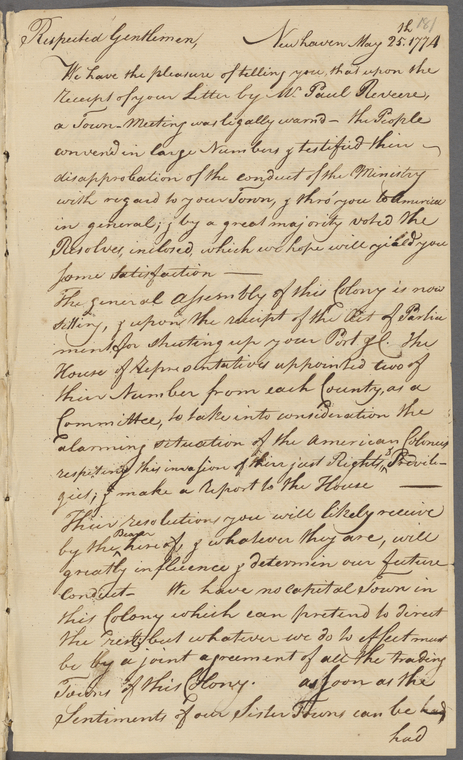 181
Respected Gentlemen, Newhaven May 25.th 1774
We have the pleasure of telling you, that upon the
receipt of your Letter by Mr. Paul Reveere,
a Town-Meeting was legally warnd - the People
convened in large Numbers & testified their
disapprobation of the conduct of the Ministry
with regard to your Town, & thro' you to America
in general; & by a great majority voted the
Resolves, inclosed, which we hope will yield you
some satisfaction —
The general Assembly of this Colony is now
sitting, & upon the receipt of the Act of Parlia
ment for shutting up your Port &c. The
House of Representatives appointed two of
their Number from each County, as a
Committee, to take into consideration the
alarming situation of the American Colonies
respecting this invasion of their just Rights, & Privile-
gies; & make a report to the House —
Their resolutions you will likely receive
by the Bearer hereof, & whatever they are, will
greatly influence & determin our future
conduct - We have no capital Town in
this Colony which can pretend to direct
the rest; but whatever we do to effect must
be by a joint agreement of all the trading
Towns of this Colony. as soon as the
Sentiments of our Sister Towns can be had
had